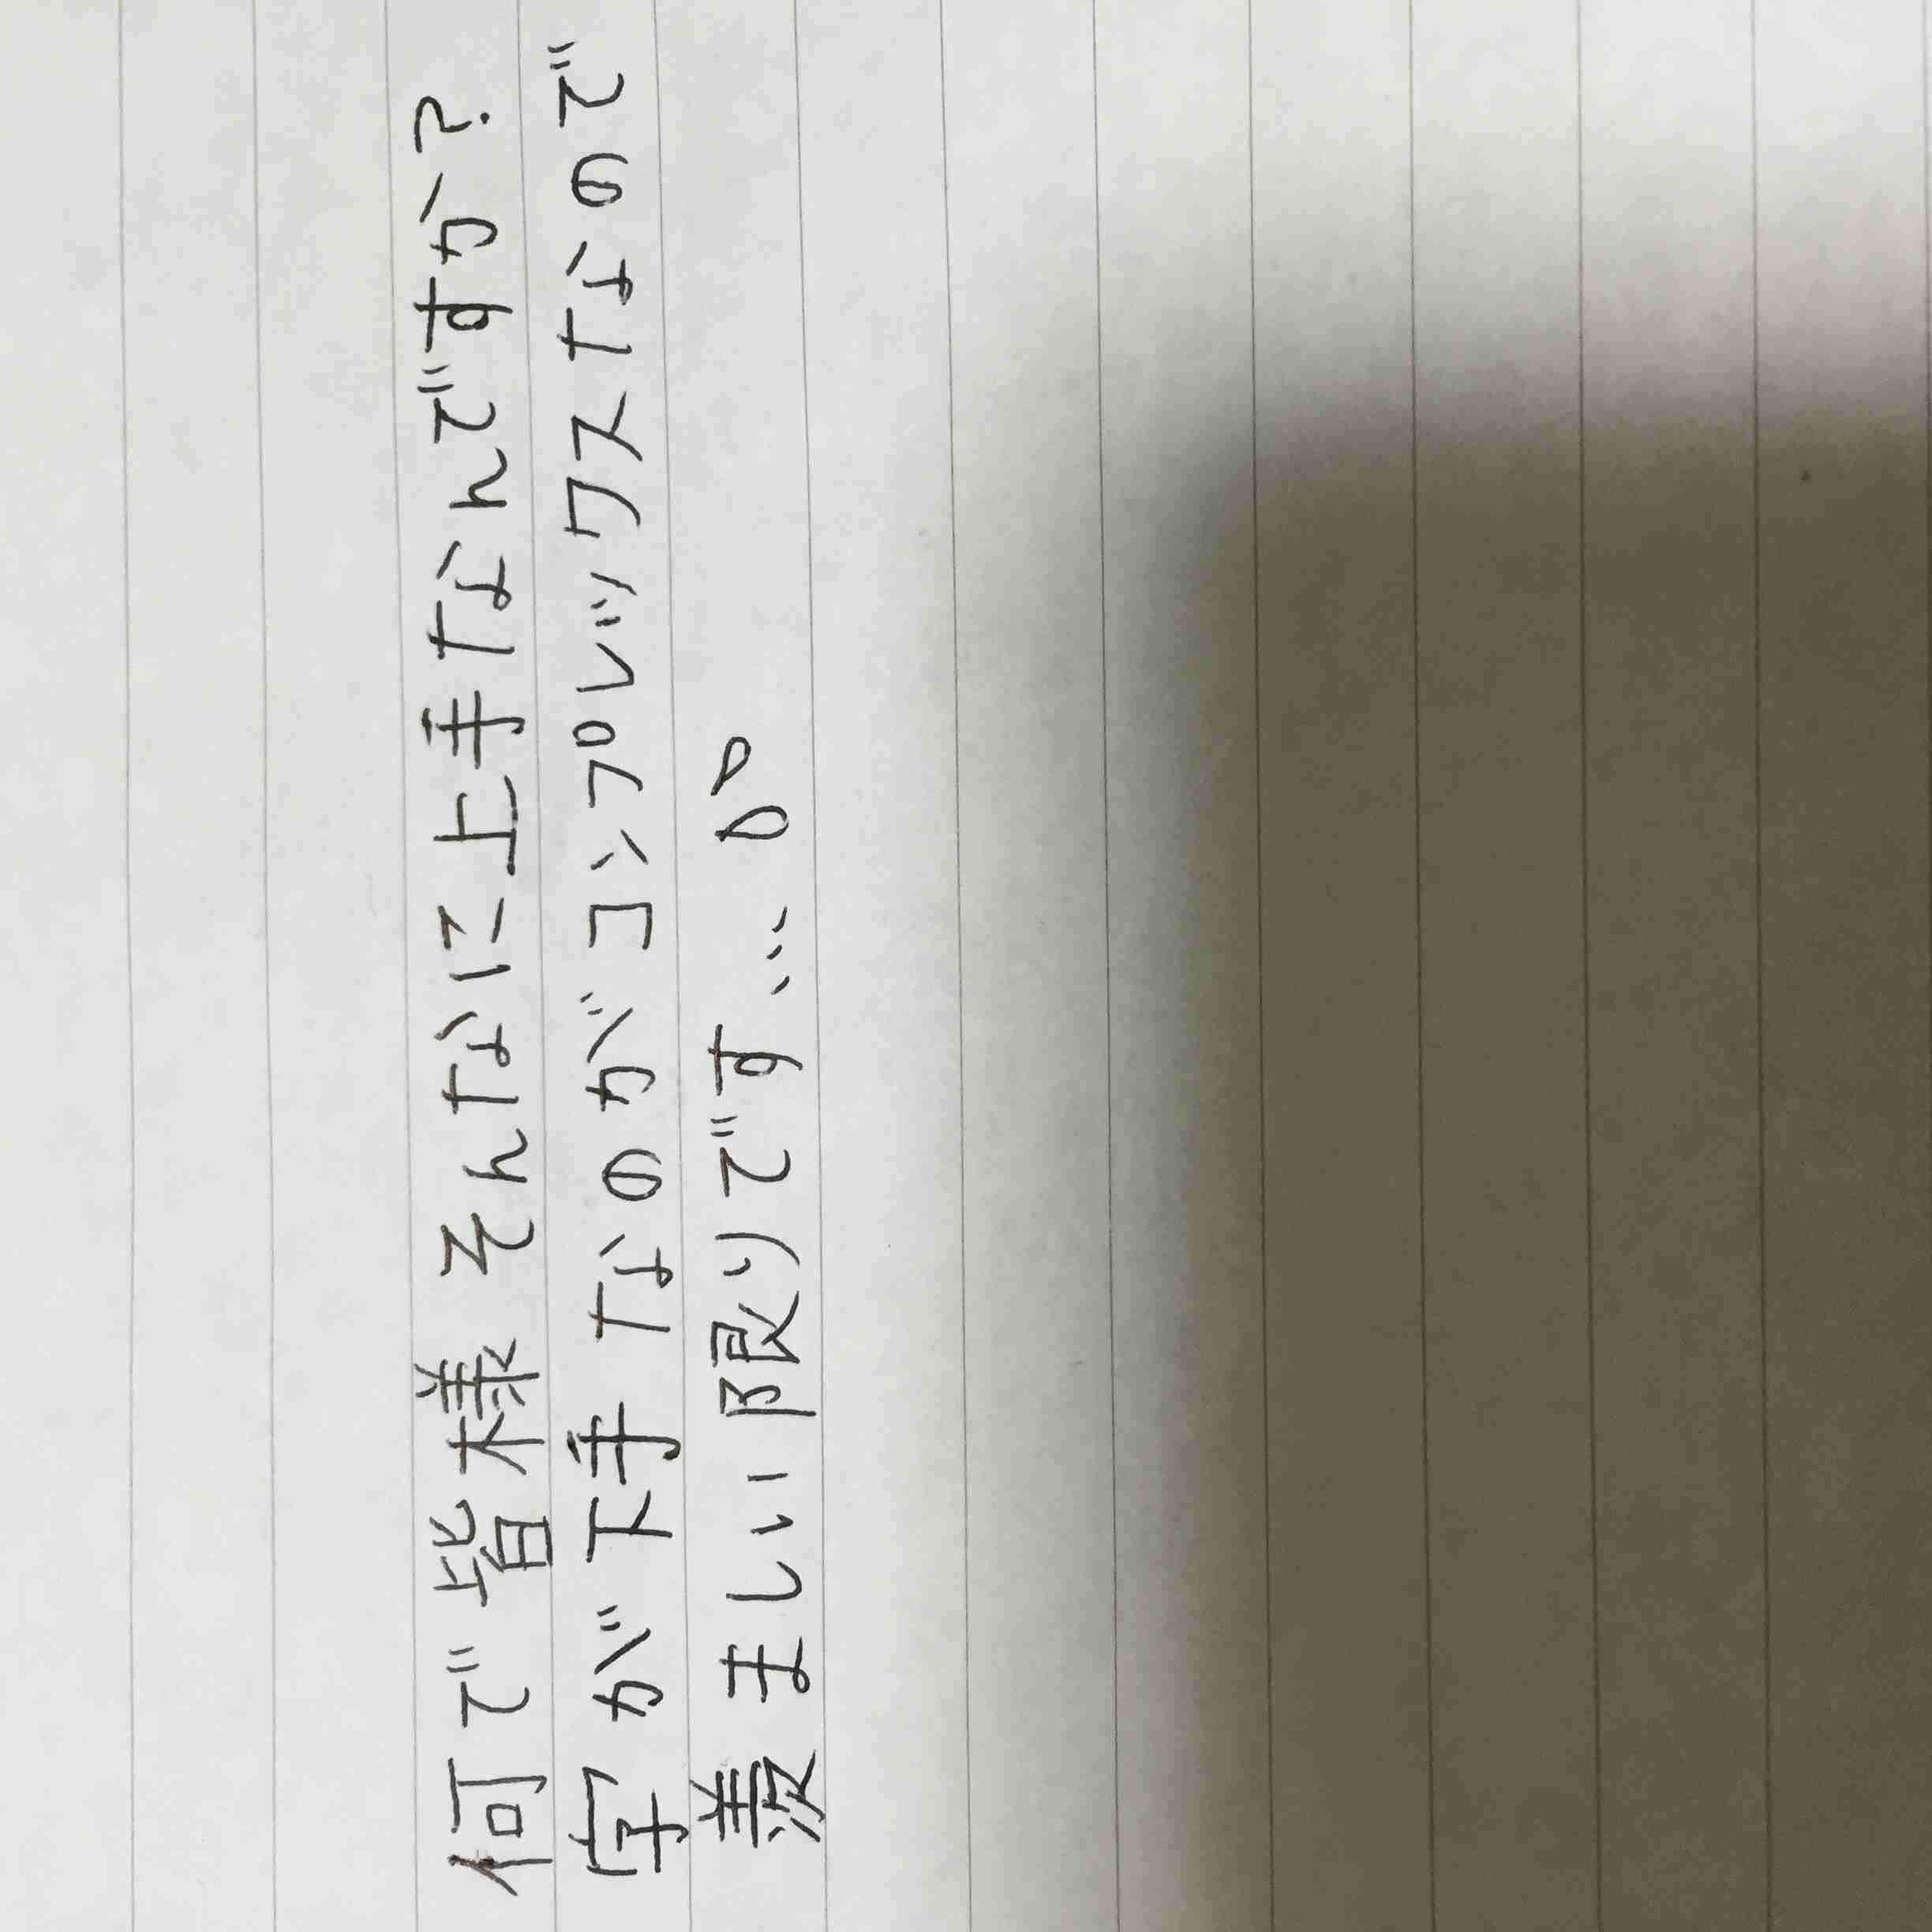 何で皆様そんなに上手なんですか？
字が下手なのがコンプレックスなので
羨ましい限りです…